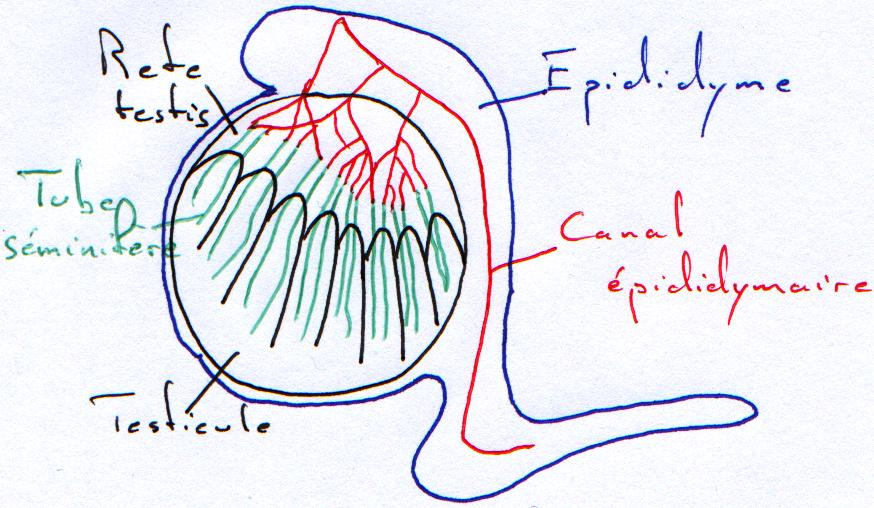 Rete
testis
Epididyme
Tube
séminifère
Canal
épididymaire
Testicule